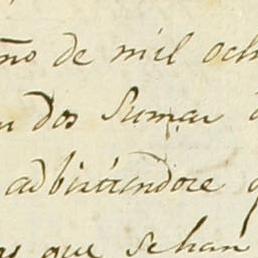 ño de mil och
dos Sumar
adbirtiendose
que se han